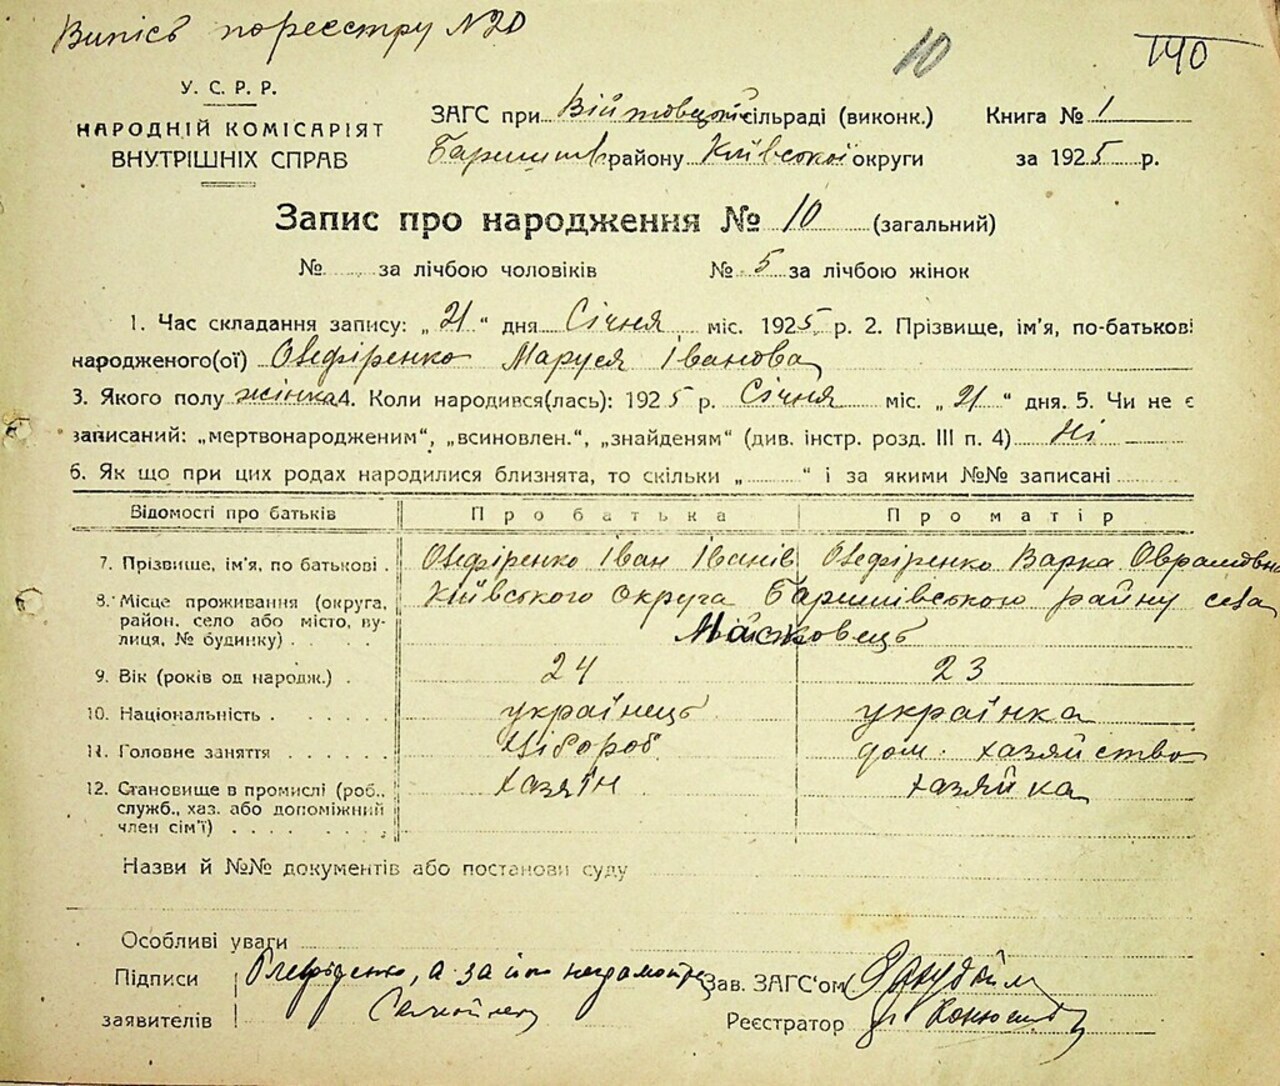 Випісь пореєстру №20
10
140
У. С. Р. Р.
НАРОДНІЙ КОМІСАРІЯТ
ВНУТРІШНІХ СПРАВ
ЗАГС при Війтовецкій сільраді (виконк.)
Книга № 1
району Київської округи
за 1925 р.
Запис про народження № 10 (загальний)
№ за лічбою чоловіків
№ 5 за лічбою жінок
1. Час складання запису: „21“ дня Січня міс. 1925 р. 2. Прізвище, ім'я, по-батькові
народженого(ої) Олефіренко Маруся Іванова
3. Якого полу жінка 4. Коли народився(лась): 1925 р. Січня міс. „21“ дня. 5. Чи не є
записаний: „мертвонародженим“, „всиновлен.“, „знайденям“ (див. інстр. розд. III п. 4) Ні
6. Як що при цих родах народилися близнята, то скільки „ “ і за якими №№ записані
Відомості про батьків
Про батька
Про матір
7. Прізвище, ім'я, по батькові . Олефіренко Іван Іванів Олефіренко Варка Оврамовна
8. Місце проживання (округа, район, село або місто, вулиця, № будинку) . Київського Округа Баришівського району села
9. Вік (років од народж.) . 24 23
10. Національність . українець українка
11. Головне заняття . Хібороб дом. хазяйство
12. Становище в промислі (роб., служб., хаз. або допоміжний член сім'ї) . хазяїн хазяйка
Назви й №№ документів або постанови суду
Особливі уваги
Підписи заявителів
Олефіренко, а за його
Зав. ЗАГС'ом
Реєстратор